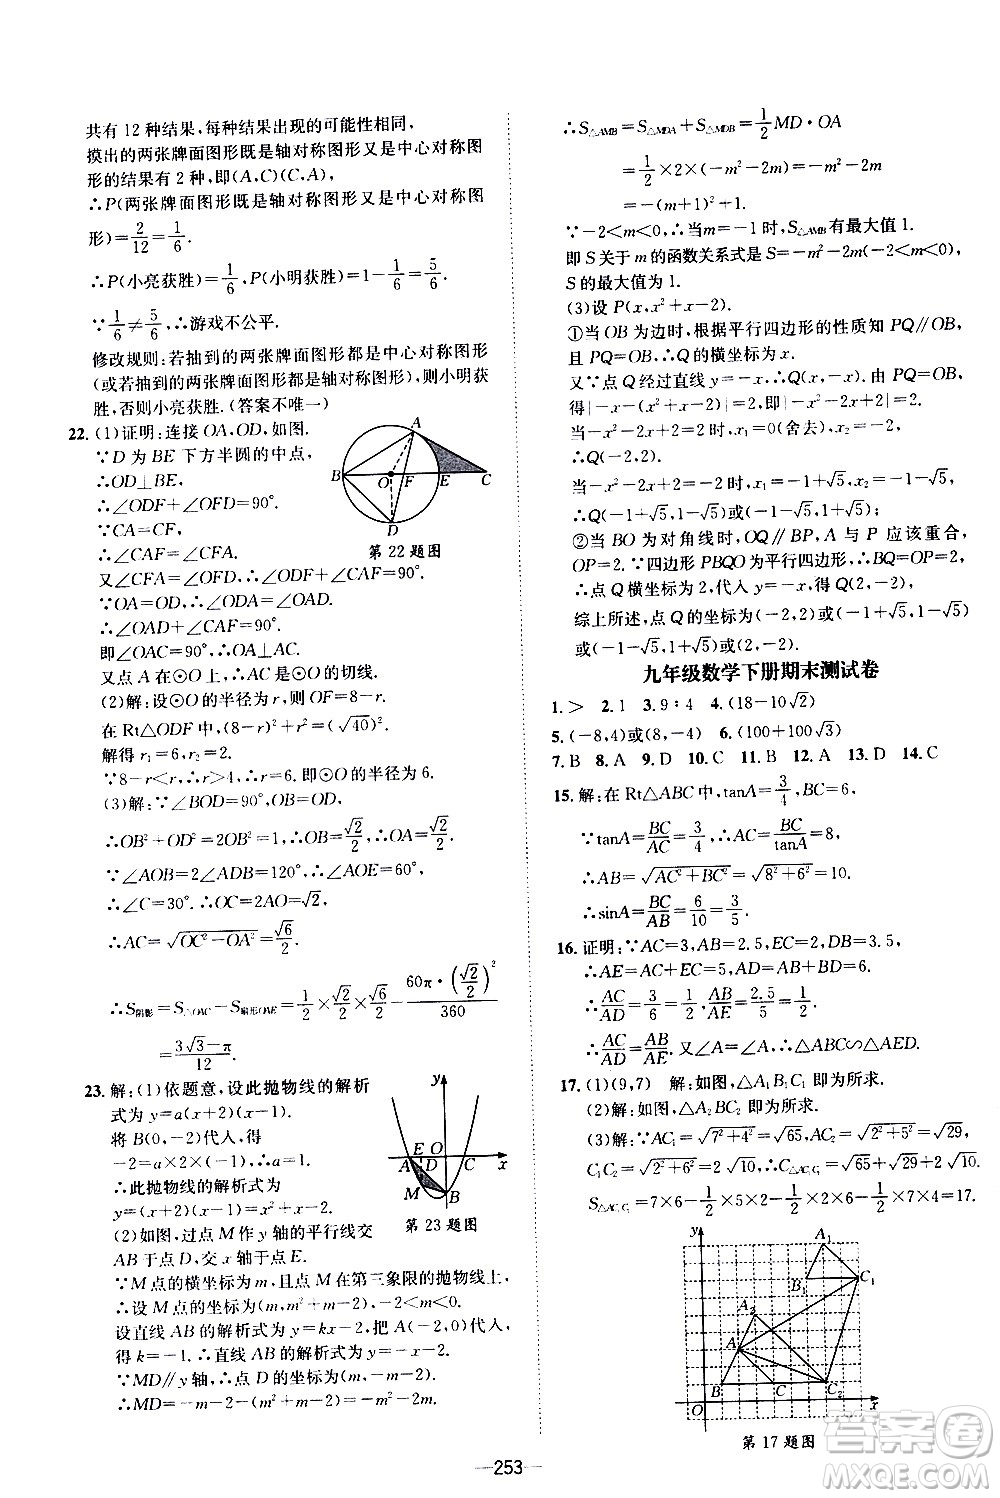 共有12种结果,每种结果出现的可能性相同,
摸出的两张牌面图形既是轴对称图形又是中心对称图
形的结果有2种,即(A,C)(C,A),
∴P(两张牌面图形既是轴对称图形又是中心对称图
形)=2/12=1/6.
∴P(小亮获胜)=1/6,P(小明获胜)=1-1/6=5/6.
∵1/6≠5/6,∴游戏不公平.
修改规则:若抽到的两张牌面图形都是中心对称图形
(或若抽到的两张牌面图形都是轴对称图形),则小明获
胜,否则小亮获胜.(答案不唯一)
22.(1)证明:连接OA,OD,如图.
∵D为BE下方半圆的中点,
∴OD⊥BE,
∴∠ODF+∠OFD=90°.
∵CA=CF,
∴∠CAF=∠CFA.
又∠CFA=∠OFD,∴∠ODF+∠CAF=90°.
∵OA=OD,∴∠ODA=∠OAD.
∴∠OAD+∠CAF=90°,
即∠OAC=90°.∴OA⊥AC.
又点A在⊙O上,∴AC是⊙O的切线.
(2)解:设⊙O的半径为r,则OF=8-r.
在Rt△ODF中,(8-r)²+r²=(√40)².
解得r₁=6,r₂=2.
∵8-r<r,∴r=6.即⊙O的半径为6.
(3)解:∵∠BOD=90°,OB=OD,
∴OB²+OD²=2OB²=1.∴OB=√2/2.∴OA=√2/2.
∵∠AOB=2∠ADB=120°,∴∠AOE=60°.
∴∠C=30°.∴OC=2AO=√2.
∴AC=√(OC²-OA²)=√6/2.
∴S阴影=S△OAC-S扇形OAE=1/2×√2/2×√6/2-60π·(√2/2)²/360
=(3√3-π)/12.
A
B
O
F
E
C
D
第22题图
23.解:(1)依题意,设此抛物线的解析
式为y=a(x+2)(x-1).
将B(0,-2)代入,得
-2=a×2×(-1).解得a=1.
∴此抛物线的解析式为
y=(x+2)(x-1)=x²+x-2.
(2)如图,过点M作y轴的平行线交
AB于点D,交x轴于点E.
∵M点的横坐标为m,且点M在第三象限的抛物线上,
∴设M点的坐标为(m,m²+m-2),-2<m<0.
设直线AB的解析式为y=kx-2,把A(-2,0)代入,
得k=-1.∴直线AB的解析式为y=-x-2.
∵MD∥y轴,∴点D的坐标为(m,-m-2).
∴MD=-m-2-(m²+m-2)=-m²-2m.
y
A
E
O
D
C
x
M
B
第23题图
∴S△AMB=S△MDA+S△MDB=1/2MD·OA
=1/2×2×(-m²-2m)=-m²-2m
=-(m+1)²+1.
∵-2<m<0,∴当m=-1时,S△AMB有最大值1.
即S关于m的函数关系式是S=-m²-2m(-2<m<0),
S的最大值为1.
(3)设P(x,x²+x-2).
①当OB为边时,根据平行四边形的性质知PQ∥OB,
∴Q的横坐标等于P的横坐标x.
又∵点Q经过直线y=-x,∴Q(x,-x).由PQ=OB,
得|-x²-2x+2|=2.
当-x²-2x+2=-2时,x₁=-1+√5,x₂=-1-√5.
∴Q(-1+√5,1-√5)或(-1-√5,1+√5).
②当BO为对角线时,OQ∥BP,A与P应该重合,
OP=2.∵四边形PBQO为平行四边形,∴BQ=OP=2.
∴点Q横坐标为2,代入y=-x,得Q(2,-2).
综上所述,点Q的坐标为(-2,2)或(-1+√5,1-√5)
或(-1-√5,1+√5)或(2,-2).
九年级数学下册期末测试卷
1.> 2.1 3.9∶4 4.(18-10√2)
5.(-8,4)或(8,-4) 6.(100+100√3)
7.B 8.A 9.D 10.C 11.B 12.A 13.D 14.C
15.解:在Rt△ABC中,tanA=3/4,BC=6,
∵tanA=BC/AC=3/4,∴AC=BC/tanA=8,
∴AB=√(AC²+BC²)=√(8²+6²)=10.
∴sinA=BC/AB=6/10=3/5.
16.证明:∵AC=3,AB=2.5,EC=2,DB=3.5,
∴AE=AC+EC=5,AD=AB+DB=6.
∴AC/AD=3/6=1/2,AB/AE=2.5/5=1/2.
∴AC/AD=AB/AE.又∠A=∠A,∴△ABC∽△AED.
17.(1)(9,7) 解:如图,△A₁B₁C₁即为所求.
(2)解:如图,△A₂BC₂即为所求.
(3)解:∵AC₁=√(7²+4²)=√65,AC₂=√(2²+5²)=√29,
C₁C₂=√(6²+2²)=2√10,∴C△AC₁C₂=√65+√29+2√10.
S△AC₁C₂=7×6-1/2×2×5-1/2×6×2-1/2×7×4=17.
y
A₁
B₁
C₁
A₂
A
B
C
C₂
O
x
第17题图
253
答案圈
MXQE.COM